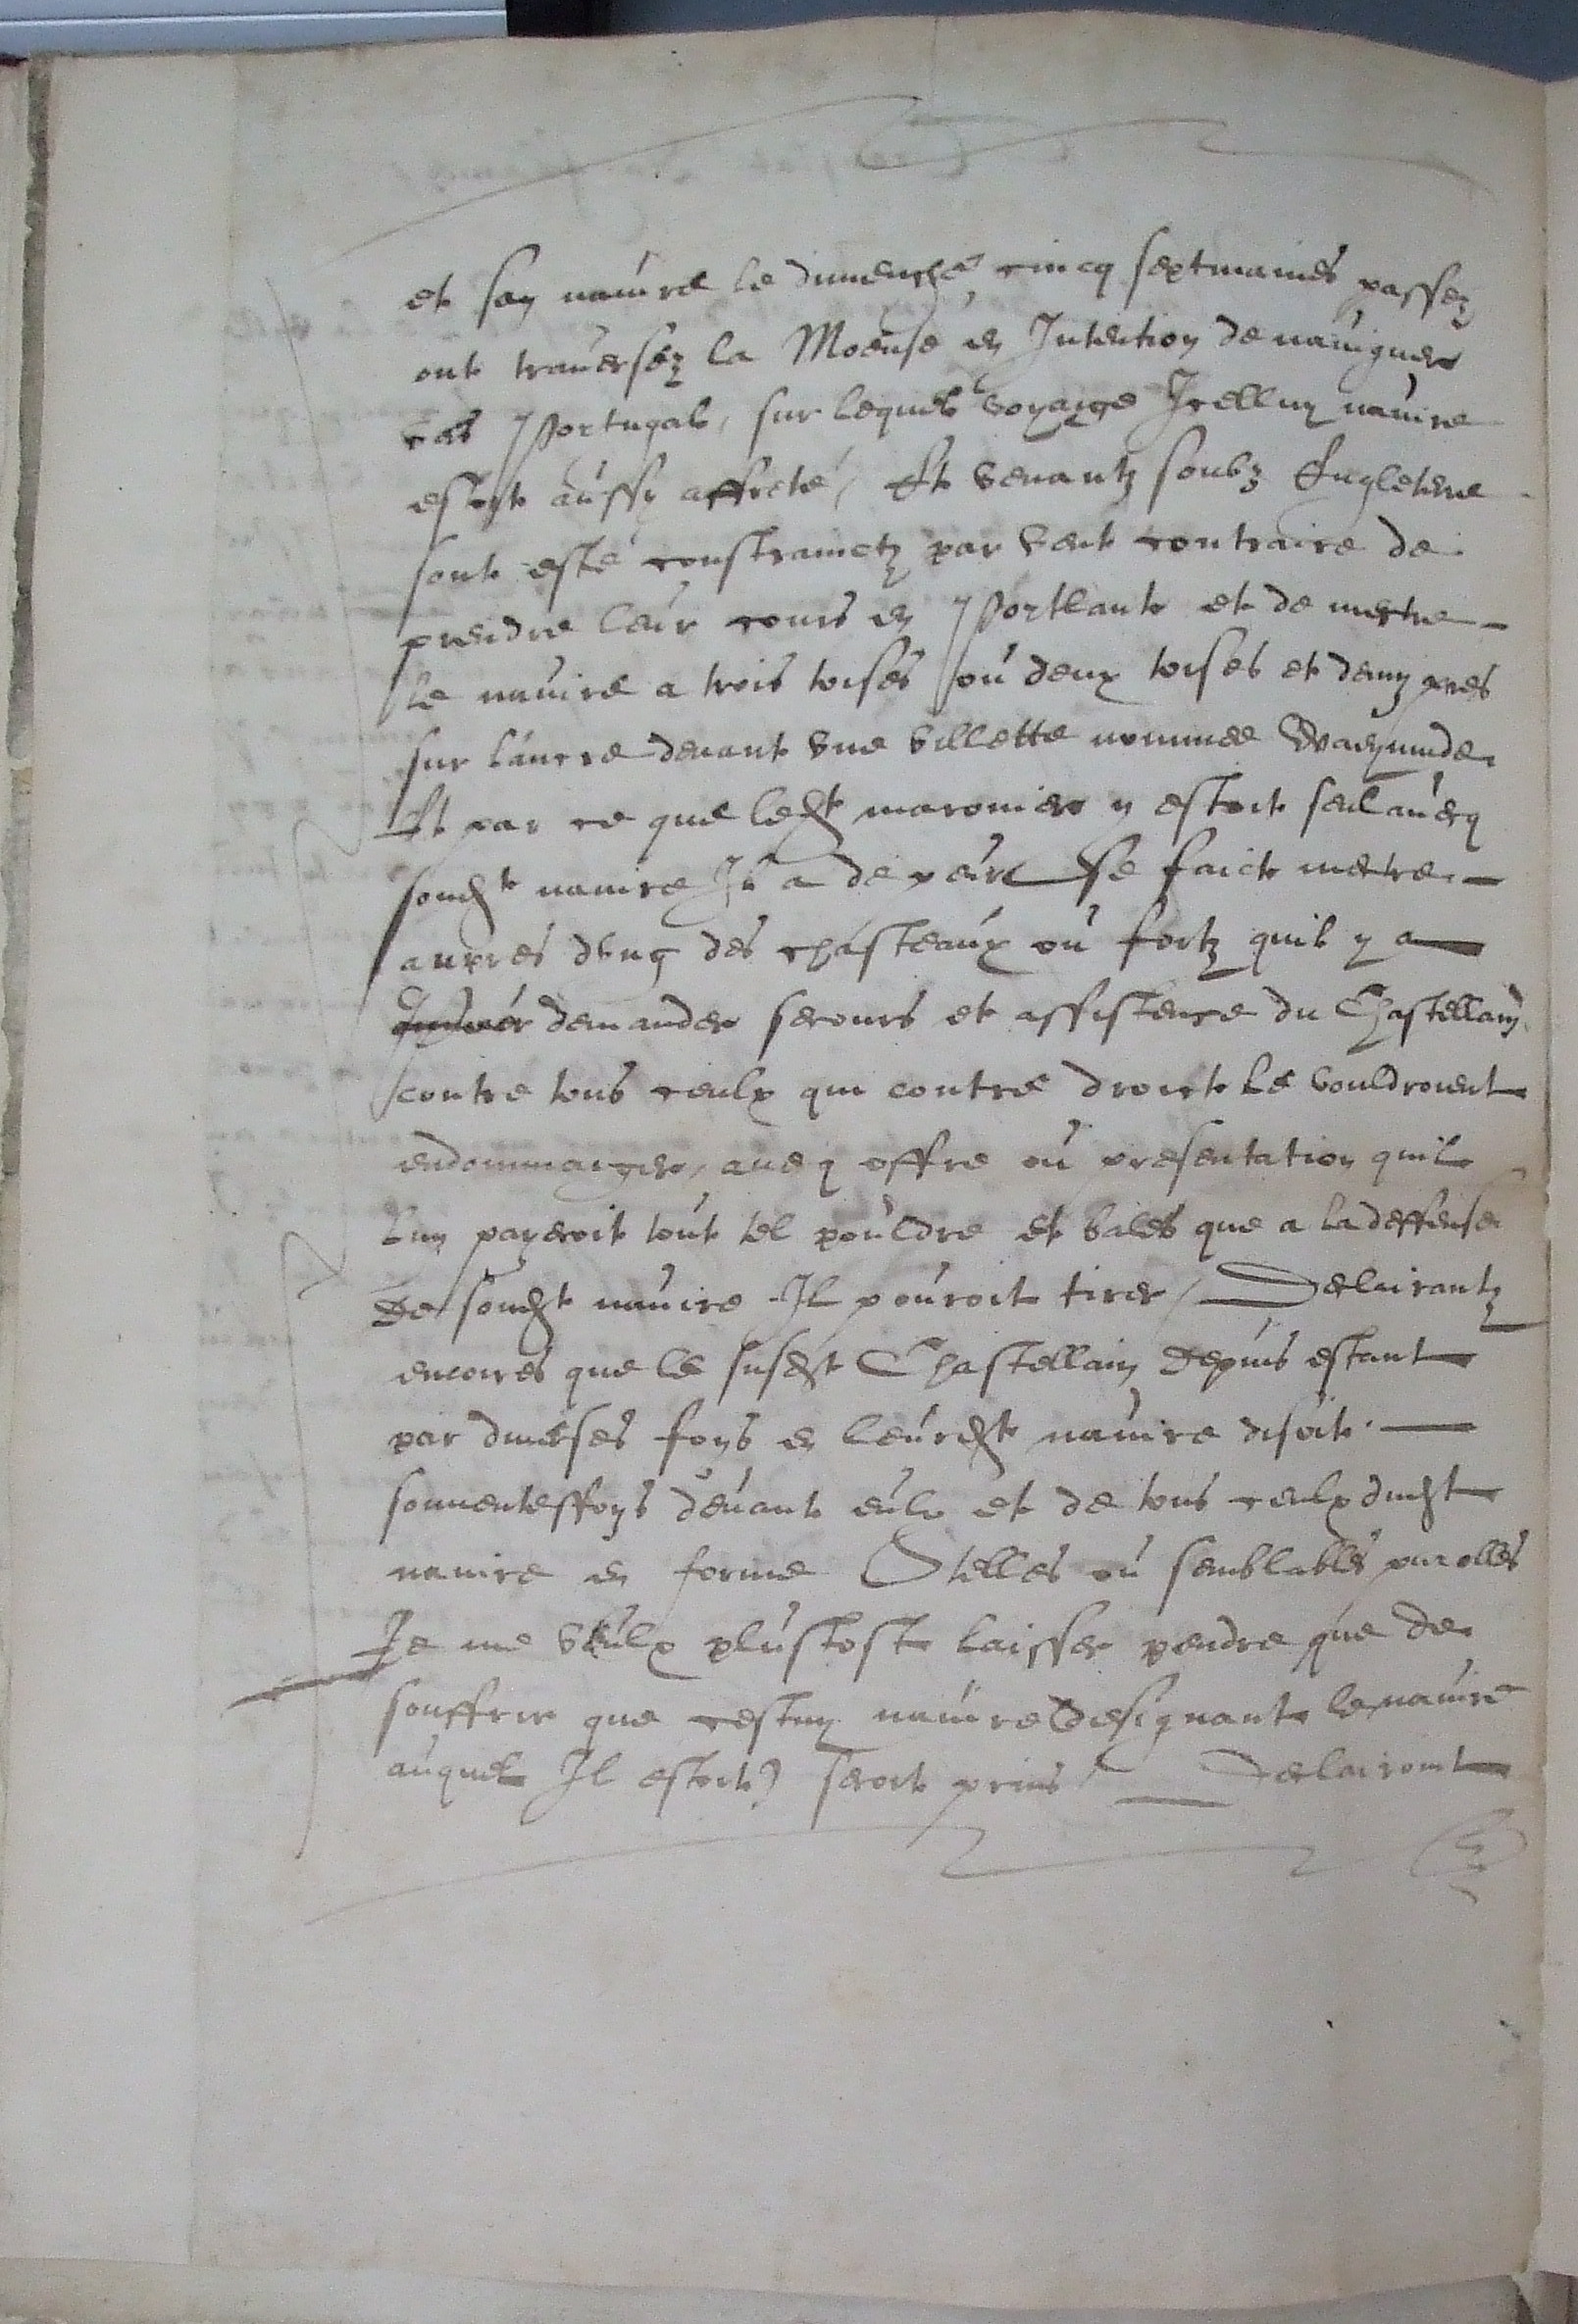 et son navire le dimenche cincq septmaines passez
ont traversez la Moeuse en Intention de naviguer
vers Portugal, sur lequel voyaige Icelluy navire
estoit aussy affreté, Et venantz soubz Engleterre
sont esté constrainctz par vent contraire de
prendre leur cours en Portlant et de mectre
le navire a trois toises ou deux toises et demy pres
sur lancre devant une villette nommee Waeymude
Et par ce que ledt maronier y estoit seul avecq
soudt navire Il a de peur se faict mectre
aupres dung des chasteaux ou fortz quil y a
demander secours et assistence du Chastellain
contre tous ceulx qui contre droict le vouldroient
endommaiger, avecq offre ou presentation quil
luy payeroit tout tel pouldre et bales que a la deffense
de soudt navire Il pouroit tirer / Declairantz
encoires que le susdt Chastellain depuis estant
par diverses foys en leurdt navire disoit
souventeffoys devant eulx et de tous ceulx dudt
navire en forme telles ou semblables parolles
Je me veulx plustost laisser pendre que de
souffrir que cestuy navire (designant le navire
auquel Il estoit) seroit prins / Declairont